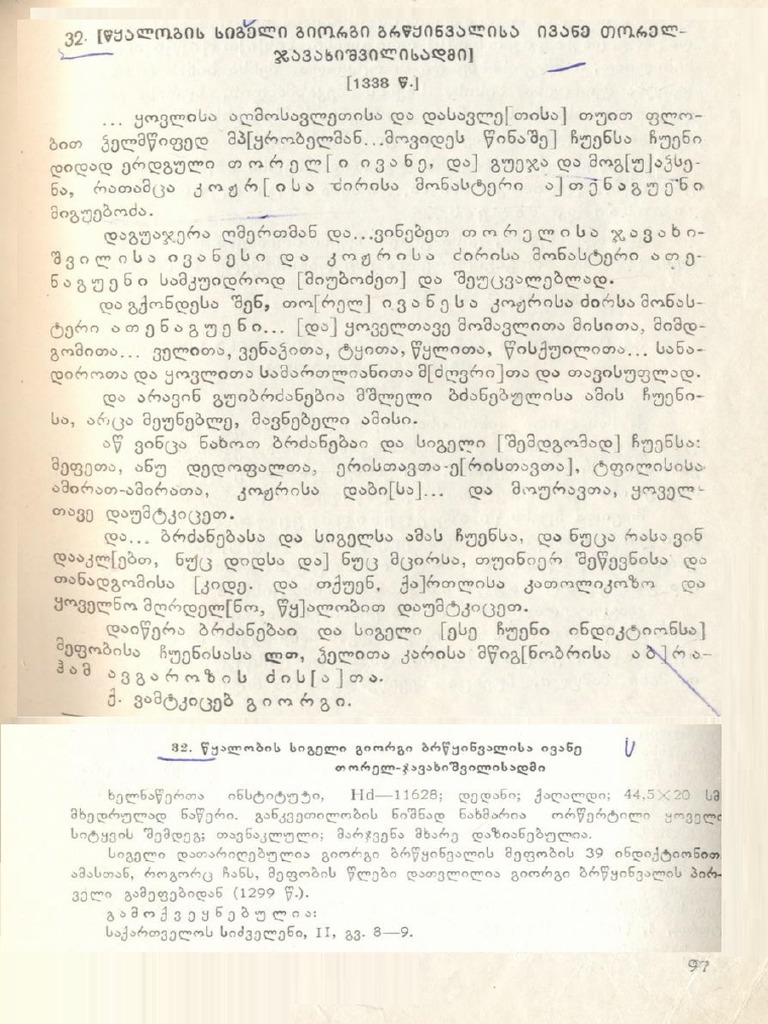 32. [წყალობის სიგელი გიორგი ბრწყინვალისა ივანე თორელ-
ჯავახიშვილისადმი]
[1338 წ.]
... ყოვლისა აღმოსავლეთისა და დასავლე[თისა] თუით ფლო-
ბით ჴელმწიფედ მპ[ყრობელმან...მოვიდეს წინაშე] ჩუენსა ჩუენი
დიდად ერდგული თორელ[ი ივანე, და] გუეჯა და მოგ[უ]აჴსე-
ნა, რათამცა კოჟრ[ისა ძირისა მონასტერი ა]თენაგუენი
მიგუებოძა.
დაგუაჯერა ღმერთმან და...ვინებეთ თორელისა ჯავახი-
შვილისა ივანესი და კოჟრისა ძირისა მონასტერი ათე-
ნაგუენი სამკუიდროდ [მიუბოძეთ] და შეუცვალებლად.
და გქონდესა შენ, თო[რელ] ივანესა კოჟრისა ძირსა მონას-
ტერი ათენაგუენი... [და] ყოველთავე მომავლითა მისითა, მიმდ-
გომითა... ველითა, ვენაჴითა, ტყითა, წყლითა, წისქუილითა... სანა-
დიროთა და ყოვლითა სამართლიანითა მ[ძღვრი]თა და თავისუფლად.
და არავინ გუიბრძანებია მშლელი ბძანებულისა ამის ჩუენი-
სა, არცა მეუნებლე, მავნებელი ამისი.
აწ ვინცა ნახოთ ბრძანებაი და სიგელი [შემდგომად] ჩუენსა:
მეფეთა, ანუ დედოფალთა, ერისთავთა-ე[რისთავთა], ტფილისისა
ამირათ-ამირათა, კოჟრისა დაბი[სა]... და მოურავთა, ყოველ-
თავე დაუმტკიცეთ.
და... ბრძანებასა და სიგელსა ამას ჩუენსა, და ნუცა რასა ვინ
დააკლ[ებთ, ნუც დიდსა და] ნუც მცირსა, თუინიერ შეწევნისა და
თანადგომისა [კიდე. და თქუენ, ქა]რთლისა კათოლიკოზო და
ყოველნო მღრდელ[ნო, წყ]ალობით დაუმტკიცეთ.
დაიწერა ბრძანებაი და სიგელი [ესე ჩუენი ინდიკტიონსა]
მეფობისა ჩუენისასა ლთ, ჴელითა კარისა მწიგ[ნობრისა აბ]რა-
ჰამ ავგაროზის ძის[ა]თა.
ქ. ვამტკიცებ გიორგი.
32. წყალობის სიგელი გიორგი ბრწყინვალისა ივანე
თორელ-ჯავახიშვილისადმი
ხელნაწერთა ინსტიტუტი, Hd—11628; დედანი; ქაღალდი; 44,5×20 სმ
მხედრულად ნაწერი. განკვეთილობის ნიშნად ნახმარია ორწერტილი ყოველ
სიტყვის შემდეგ; თავნაკლული; მარჯვენა მხარე დაზიანებულია.
სიგელი დათარიღებულია გიორგი ბრწყინვალის მეფობის 39 ინდიქტიონით
ამასთან, როგორც ჩანს, მეფობის წლები დათვლილია გიორგი ბრწყინვალის პირ-
ველი გამეფებიდან (1299 წ.).
გამოქვეყნებულია:
საქართველოს სიძველენი, II, გვ. 8—9.
97